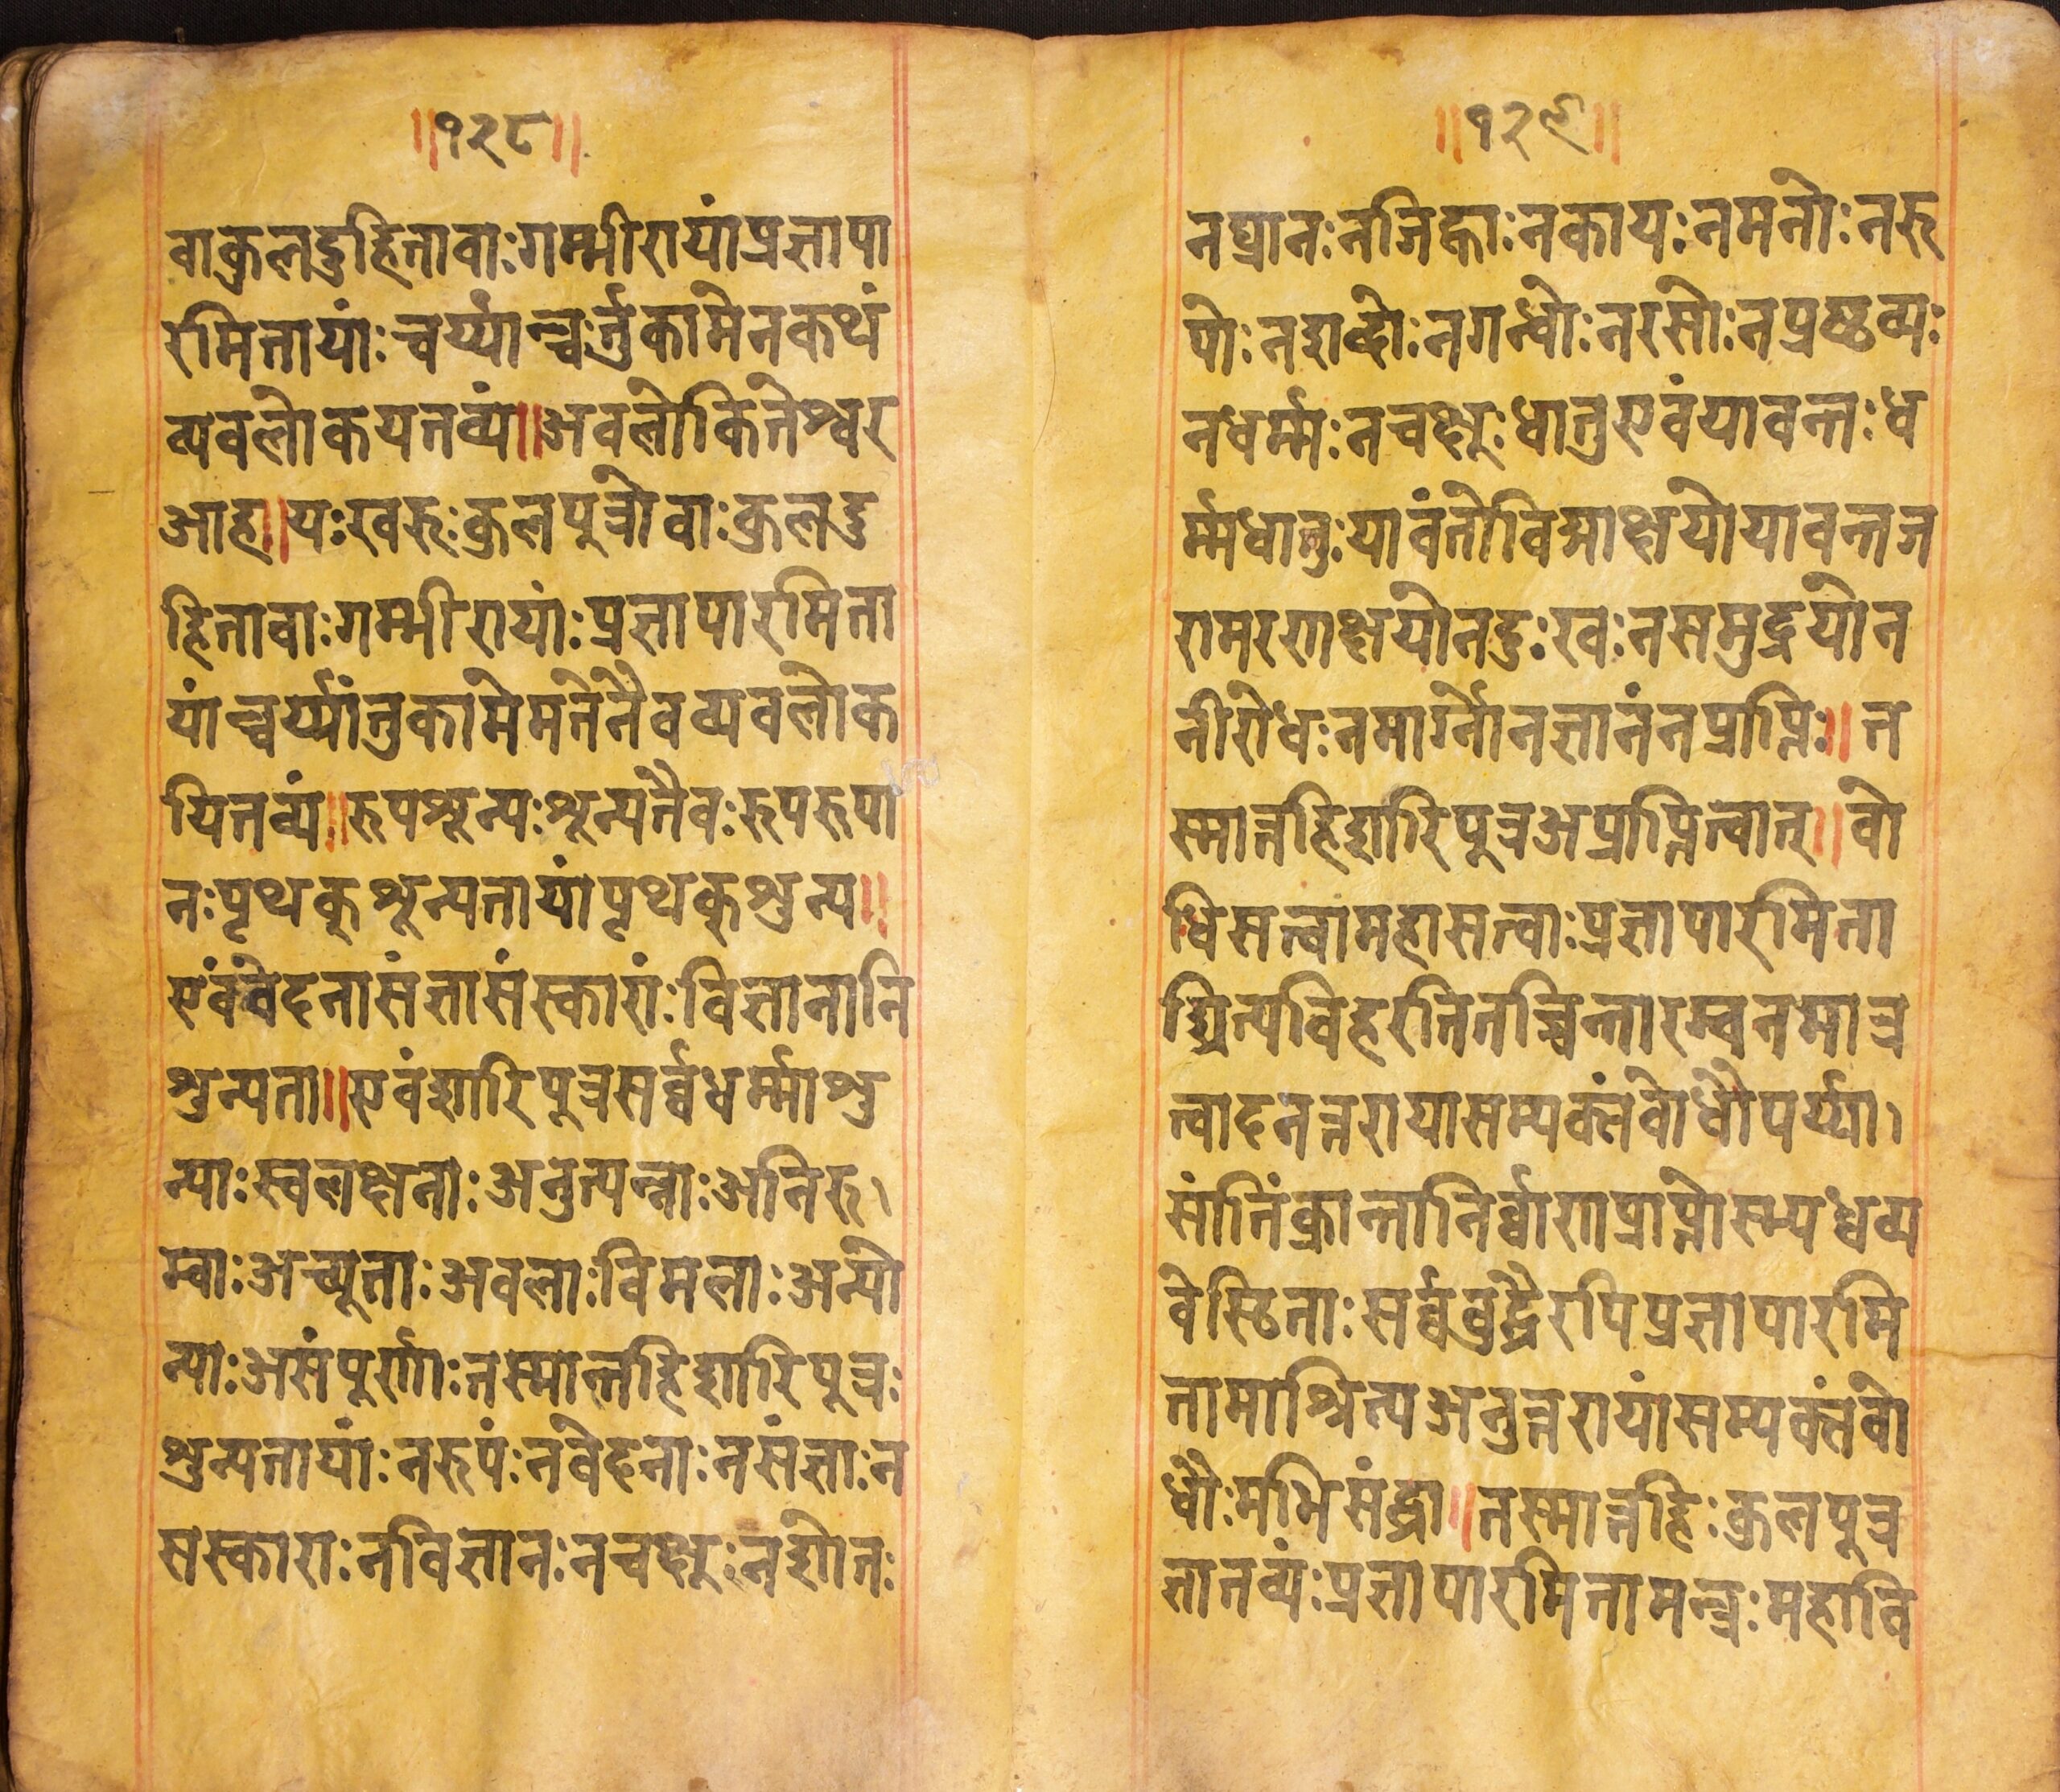 ॥१२८॥
वाकुलदुहितावाःगम्भीरायांप्रज्ञापा
रमितायांःचर्य्यांन्चर्तुकामेनकथं
व्यवलोकयतव्यं॥अवलोकितेश्वर
आहा॥यःखरुःकुलपुत्रोवाःकुलदु
हितावाःगम्भीरायांःप्रज्ञापारमिता
यांन्चर्य्यांतुकामेमतेनैवव्यवलोक
यितव्यं॥रुपश्रून्यःश्रून्यतैवःरुपरुपा
नःपृथक्श्रून्यतायांपृथक्श्रुन्य॥
एवंवेदनासंज्ञासंस्कारांःविज्ञानानि
श्रुन्यता॥एवंशारिपूत्रसर्व्वधर्म्माश्रु
न्याःस्वलक्षनाःअनुत्पन्नाःअनिरु।
म्वाःअच्यूताःअवलाःविमलाःअन्यो
न्याःअसंपूर्णाःतस्मात्तहिशारिपूत्रः
श्रुन्यतायांःनरुपंःनवेदनाःनसंज्ञाःन
सस्काराःनविज्ञानःनचक्षूःनश्रोतः
॥१२९॥
नघ्रानःनजिह्वाःनकायःनमनोःनरु
पोःनशब्दोःनगन्धोःनरसोःनप्रष्ठव्यः
नधर्म्मःनचक्षूःधातुएवंयावन्तःध
र्म्मधातुःयावंतोविद्याक्षयोयावन्तज
रामरणक्षयोनदुःखःनसमुद्रयोन
नीरोधःनमार्गोनज्ञानंनप्राप्तिः॥त
स्मात्तहिशारिपूत्रअप्राप्तित्वात्॥वो
धिसत्वामहासत्वाःप्रज्ञापारमिता
श्रित्यविहरतितच्चिन्तारम्वनमात्र
त्वादनन्नरायासम्यक्तंवोधौपर्य्या।
सांतिंक्रान्तानिर्व्वाणप्राप्तोस्म्यध्वव्य
वेस्ठिताःसर्व्ववुद्धैरपिप्रज्ञापारमि
तामाश्रित्यअनुत्तरायांसम्यक्तंवो
धौःमभिसंद्धा॥तस्मात्तहिःकुलपूत्र
ज्ञातव्यंःप्रज्ञापारमितामन्त्रःमहावि